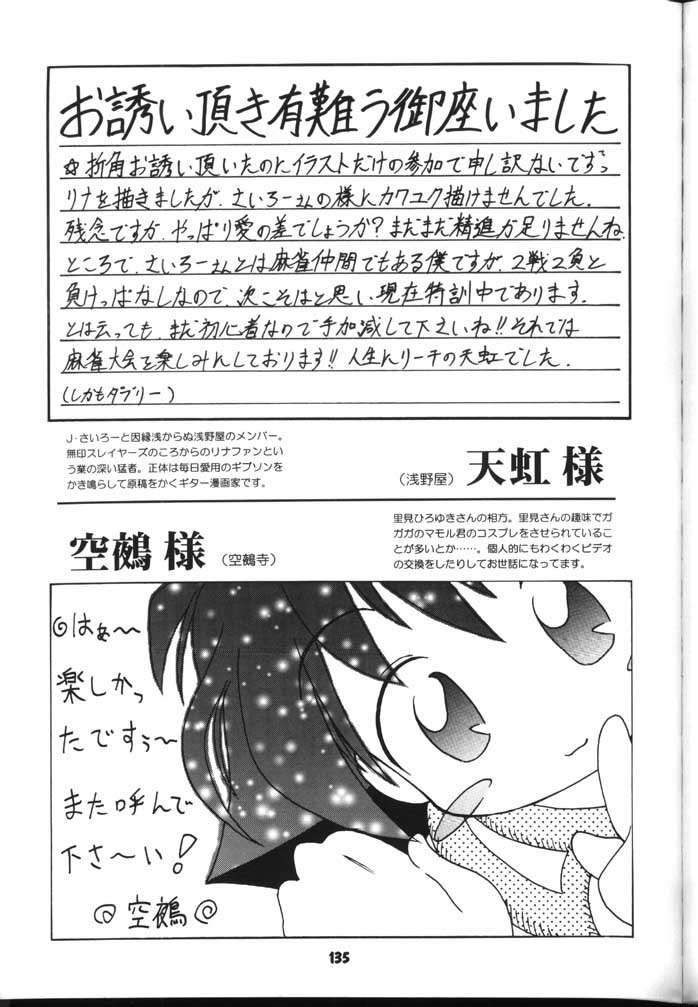 お誘い頂き有難う御座いました
☆折角お誘い頂いたのにイラストだけの参加で申し訳ないですっ
リナを描きましたが、さいろーさんの様にカワユク描けませんでした。
残念ですが、やっぱり愛の差でしょうか？まだまだ精進が足りませんね。
ところで、さいろーさんとは麻雀仲間でもある僕ですが、2戦2負と
負けっぱなしなので、次こそはと思い現在特訓中であります。
とは云っても、まだ初心者なので手加減して下さいね!!それでは
麻雀大会を楽しみにしております!!人生にリーチの天虹でした。
(しかもダブリー)
J・さいろーと因縁浅からぬ浅野屋のメンバー。
無印スレイヤーズのころからのリナファンとい
う業の深い猛者。正体は毎日愛用のギブソンを
かき鳴らして原稿をかくギター漫画家です。
（浅野屋）天虹 様
空鵺 様（空鵺寺）
里見ひろゆきさんの相方。里見さんの趣味でガ
ガガのマモル君のコスプレをさせられているこ
とが多いとか……。個人的にもわくわくビデオ
の交換をしたりしてお世話になってます。
◎はぁ〜
楽しかっ
たですぅ〜
また呼んで
下さ〜い！
◎空鵺◎
135